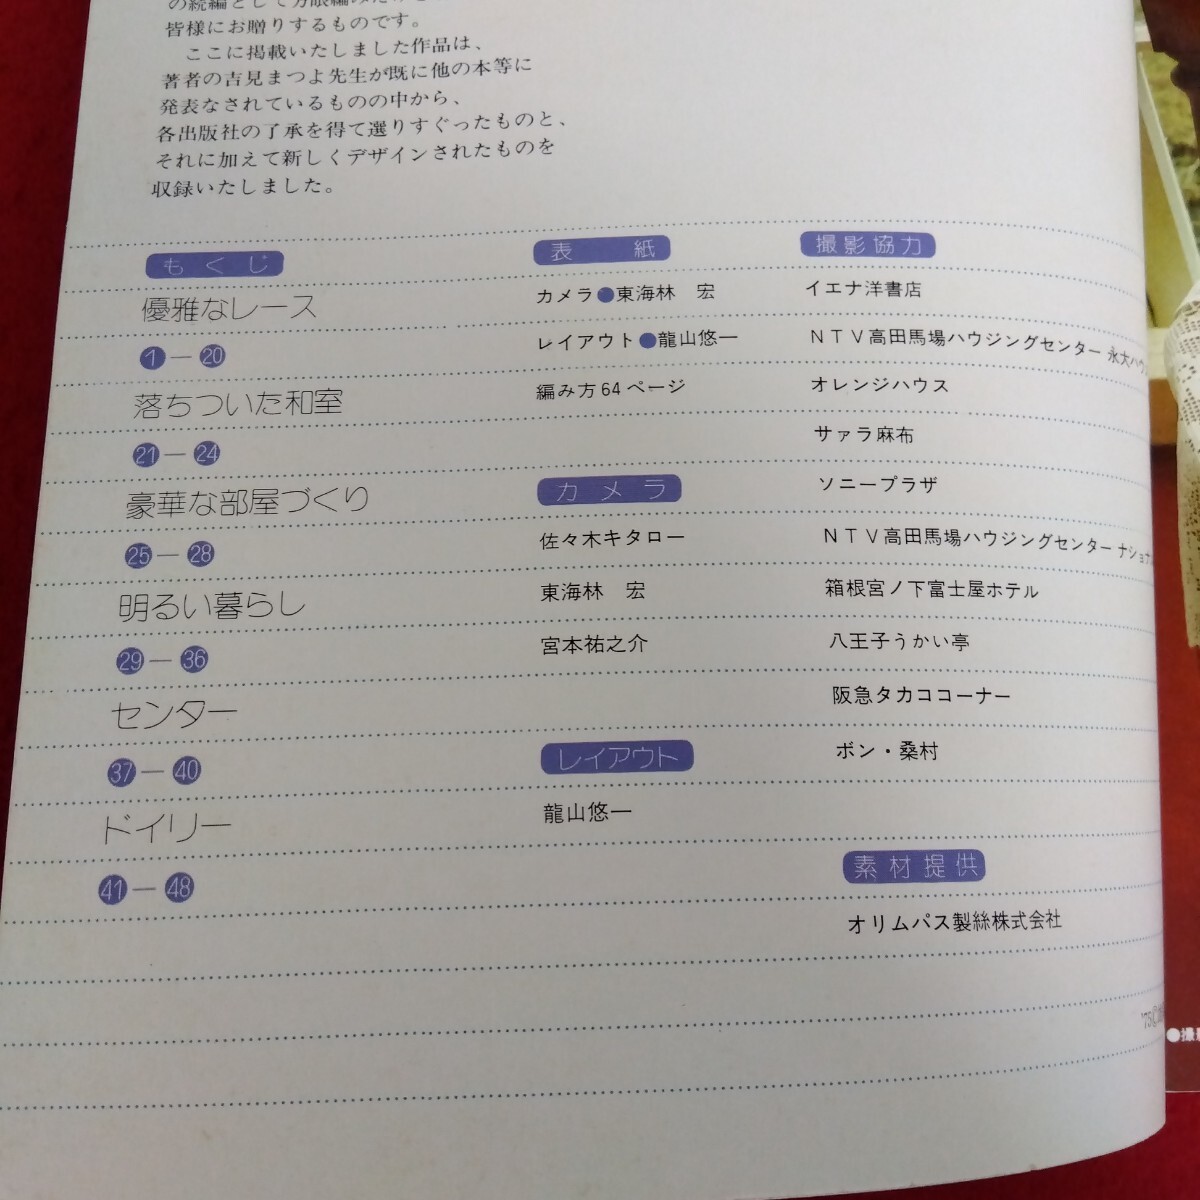 の続編として方眼編み
皆様にお贈りするものです。
ここに掲載いたしました作品は、
著者の吉見まつよ先生が既に他の本等に
発表なされているものの中から、
各出版社の了承を得て選りすぐったものと、
それに加えて新しくデザインされたものを
収録いたしました。
もくじ
優雅なレース
1—20
落ちついた和室
21—24
豪華な部屋づくり
25—28
明るい暮らし
29—36
センター
37—40
ドイリー
41—48
表紙
カメラ●東海林 宏
レイアウト●龍山悠一
編み方64ページ
カメラ
佐々木キタロー
東海林 宏
宮本祐之介
レイアウト
龍山悠一
撮影協力
イエナ洋書店
NTV高田馬場ハウジングセンター 永大ハウ
オレンジハウス
サァラ麻布
ソニープラザ
NTV高田馬場ハウジングセンター ナショナ
箱根宮ノ下富士屋ホテル
八王子うかい亭
阪急タカココーナー
ボン・桑村
素材提供
オリムパス製絲株式会社
●撮影